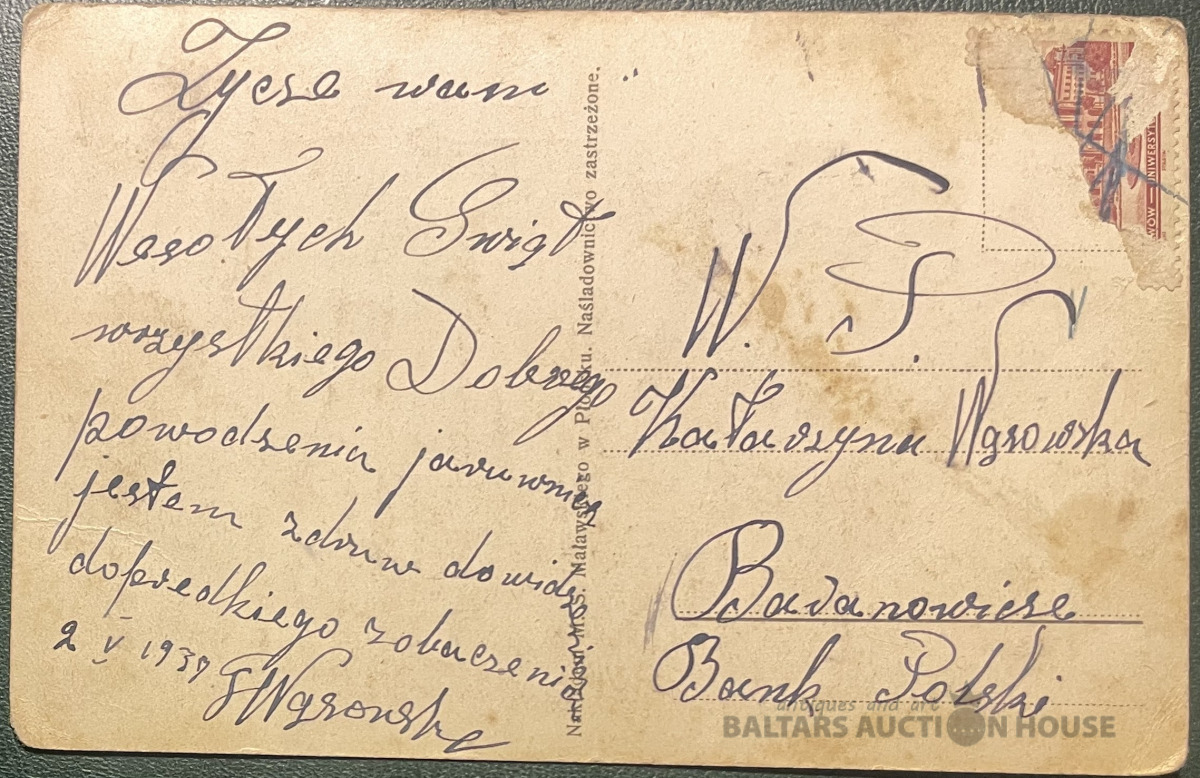 Zycze wam
Wesołych Swiąt
wszystkiego Dobrego
powodzenia
jestem zdruw dowidz
dopredkiego zobaczenia
2 V 1939
Nakładem M. S. Maławskiego w Płocku. Naśladownictwo zastrzeżone.
LWÓW — UNIWERSYT
W. P.
Katarzyna Wąsowska
Baranowicze
Bank Polski
antiques and art
BALTARS AUCTION HOUSE